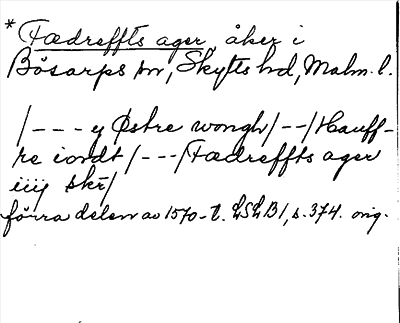 * Fædreffts ager, åker i
Bösarps sn, Skytts hd, Malm. l.
/--- y Østre wongh/--/Hauff-
re iordt/---/Fædreffts ager
iiij skr/
förra delen av 1570-t. LSLB1, s. 374. orig.